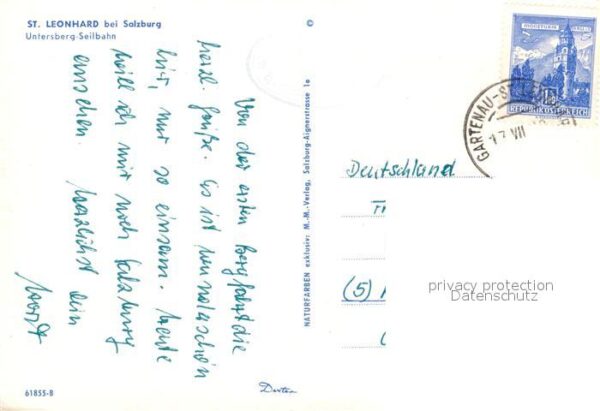 ST. LEONHARD bei Salzburg
Untersberg-Seilbahn
©
Von der ersten Bergfahrt die
herzl. Grüße. Es ist wunderschön
hier, nur so einsam. Heute
will ich mir noch Salzburg
ansehen. Herzlichst Dein
Horst
NATURFARBEN exklusiv: M.-M.-Verlag, Salzburg-Aignerstrasse 1a
REPUBLIK ÖSTERREICH
GARTENAU-S
17 VII
Deutschland
(5)
privacy protection
Datenschutz
61855-B